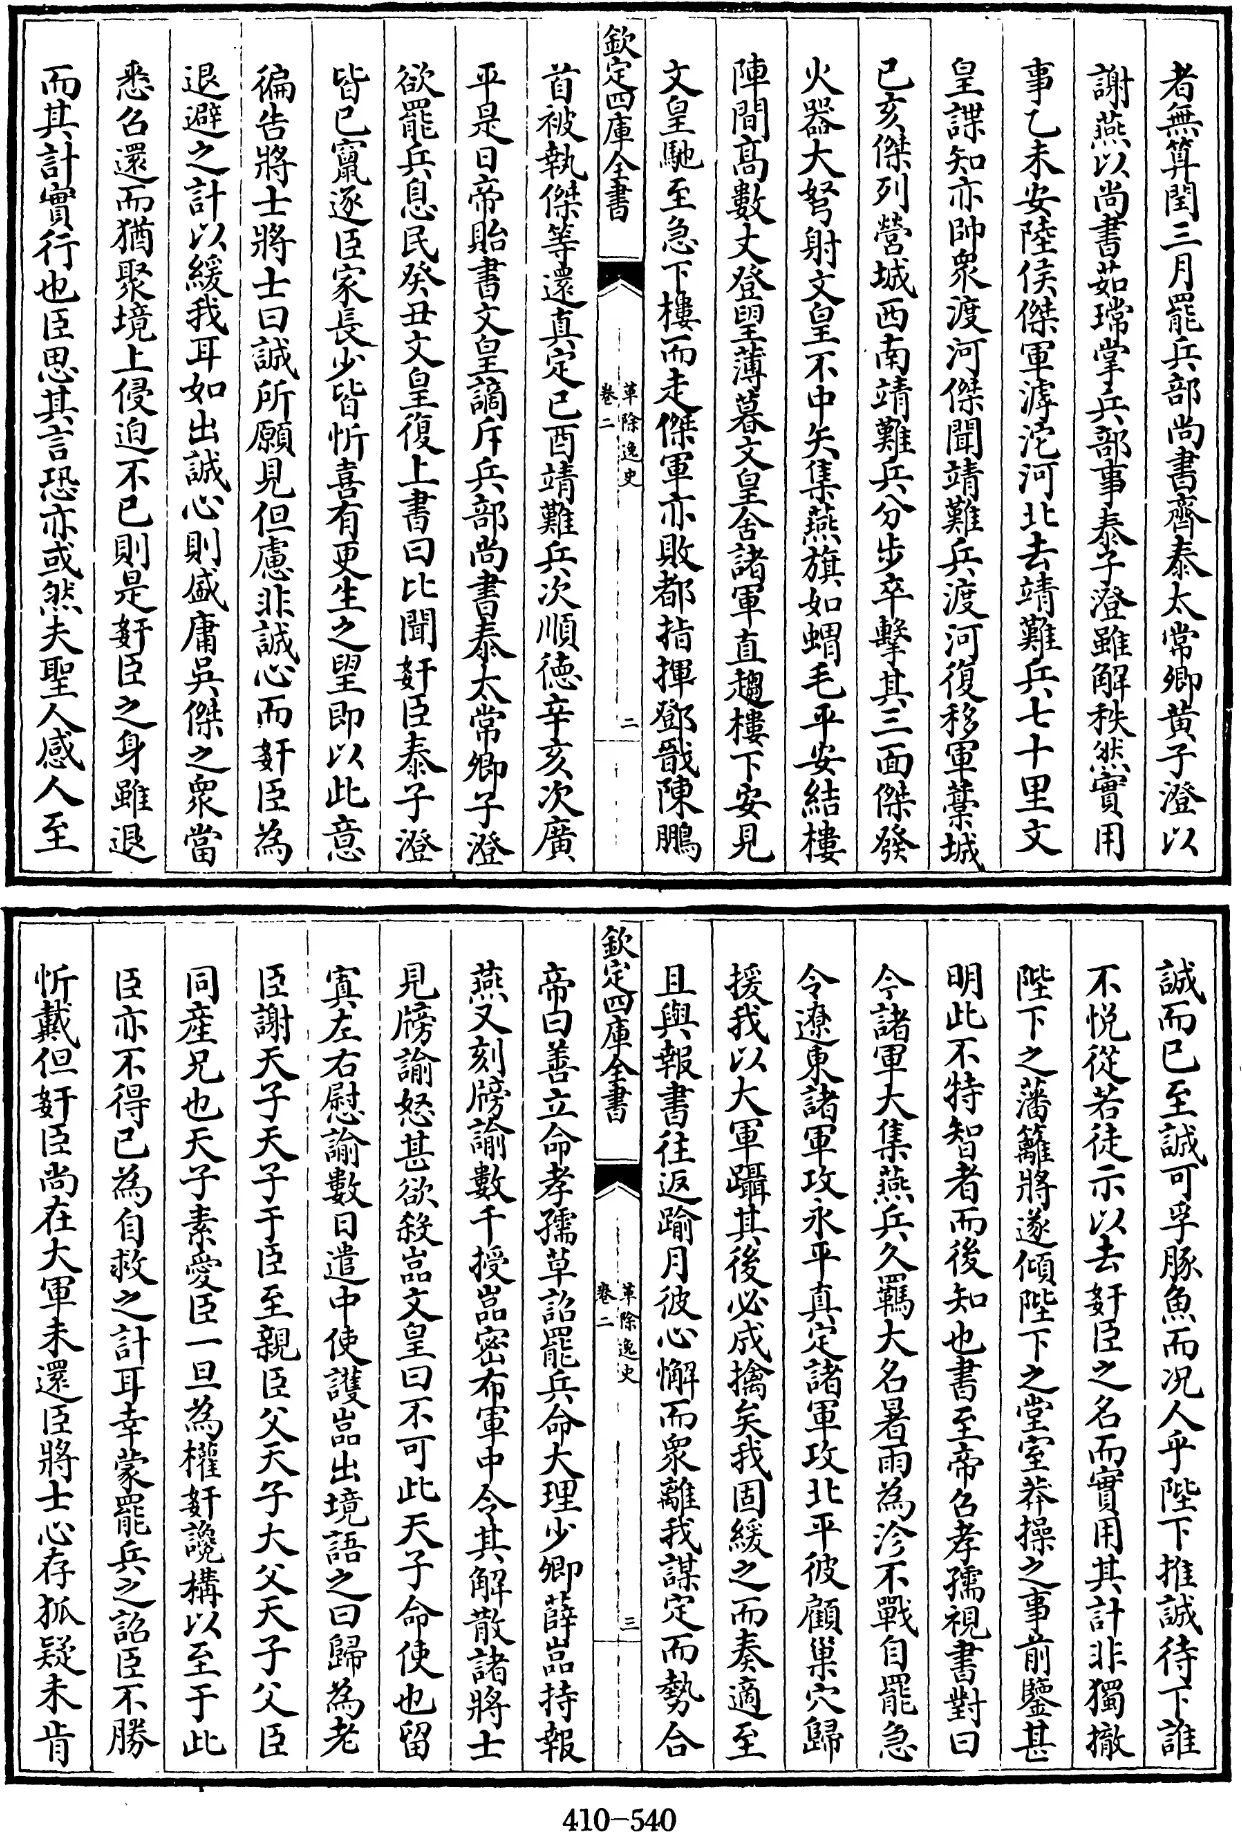 者無算閏三月罷兵部尚書齊泰太常卿黄子澄以
謝燕以尚書茹瑺掌兵部事泰子澄雖解秩然實用
事乙未安陸侯傑軍滹沱河北去靖難兵七十里文
皇諜知亦帥衆渡河傑聞靖難兵渡河復移軍藁城
己亥傑列營城西南靖難兵分步卒擊其三面傑發
火器大弩射文皇不中矢集燕旗如蝟毛平安結樓
陣間髙數丈登望薄暮文皇舍諸軍直趨樓下安見
文皇馳至急下樓而走傑軍亦敗都指揮鄧戩陳鵬
欽定四庫全書
革除逸史
卷二
二
首被執傑等還真定己酉靖難兵次順德辛亥次廣
平是日帝貽書文皇謫斥兵部尚書泰太常卿子澄
欲罷兵息民癸丑文皇復上書曰比聞奸臣泰子澄
皆已竄逐臣家長少皆忻喜有更生之望即以此意
徧告將士將士曰誠所願見但慮非誠心而奸臣為
退避之計以緩我耳如出誠心則盛庸吳傑之衆當
悉召還而猶聚境上侵迫不已則是奸臣之身雖退
而其計實行也臣思其言恐亦或然夫聖人感人至
誠而已至誠可孚豚魚而况人乎陛下推誠待下誰
不悦從若徒示以去奸臣之名而實用其計非獨撤
陛下之藩籬將遂傾陛下之堂室莽操之事前鑒甚
明此不特智者而後知也書至帝召孝孺視書對曰
今諸軍大集燕兵久羈大名暑雨為沴不戰自罷急
令遼東諸軍攻永平真定諸軍攻北平彼顧巢穴歸
援我以大軍躡其後必成擒矣我固緩之而奏適至
且與報書往返踰月彼心懈而衆離我謀定而勢合
欽定四庫全書
革除逸史
卷二
三
帝曰善立命孝孺草詔罷兵命大理少卿薛嵓持報
燕又刻牓諭數千授嵓密布軍中令其解散諸將士
見牓諭怒甚欲殺嵓文皇曰不可此天子命使也留
寘左右慰諭數日遣中使護嵓出境語之曰歸為老
臣謝天子天子于臣至親臣父天子大父天子父臣
同産兄也天子素愛臣一旦為權奸讒構以至于此
臣亦不得已為自救之計耳幸蒙罷兵之詔臣不勝
忻戴但奸臣尚在大軍未還臣將士心存狐疑未肯
410-540